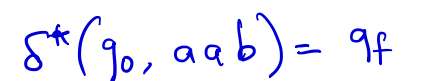 δ*(q₀, aab) = qf